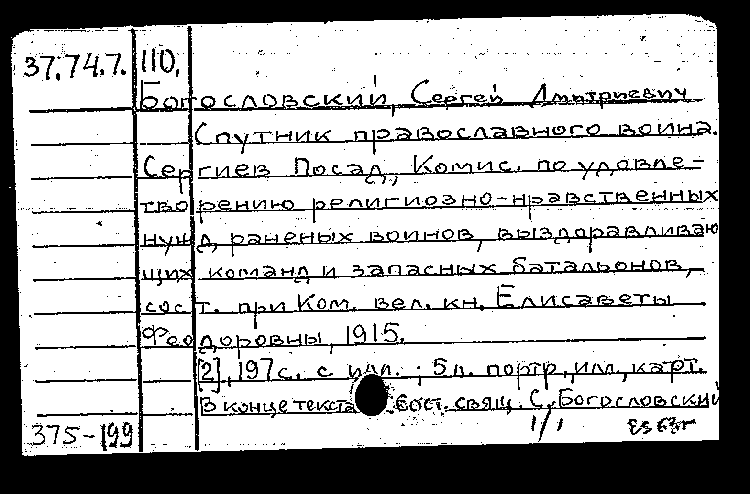 37.74.7. 110.
Богословский, Сергей Дмитриевич
Спутник православного воина.
Сергиев Посад, Комис. по удовле-
творению религиозно-нравственных
нужд раненых воинов, выздоравливаю
щих команд и запасных батальонов,
сост. при Ком. вел. кн. Елисаветы
Феодоровны, 1915.
[2], 197 с. с илл. ; 5 л. портр., илл., карт.
В конце текста сост. свящ. С. Богословский
375-199 1/1